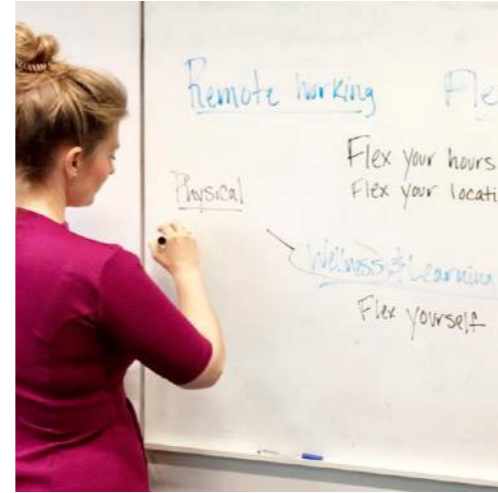 Remote Working Fle
Flex your hours
Flex your locati
Physical
Wellness & Learning
Flex yourself